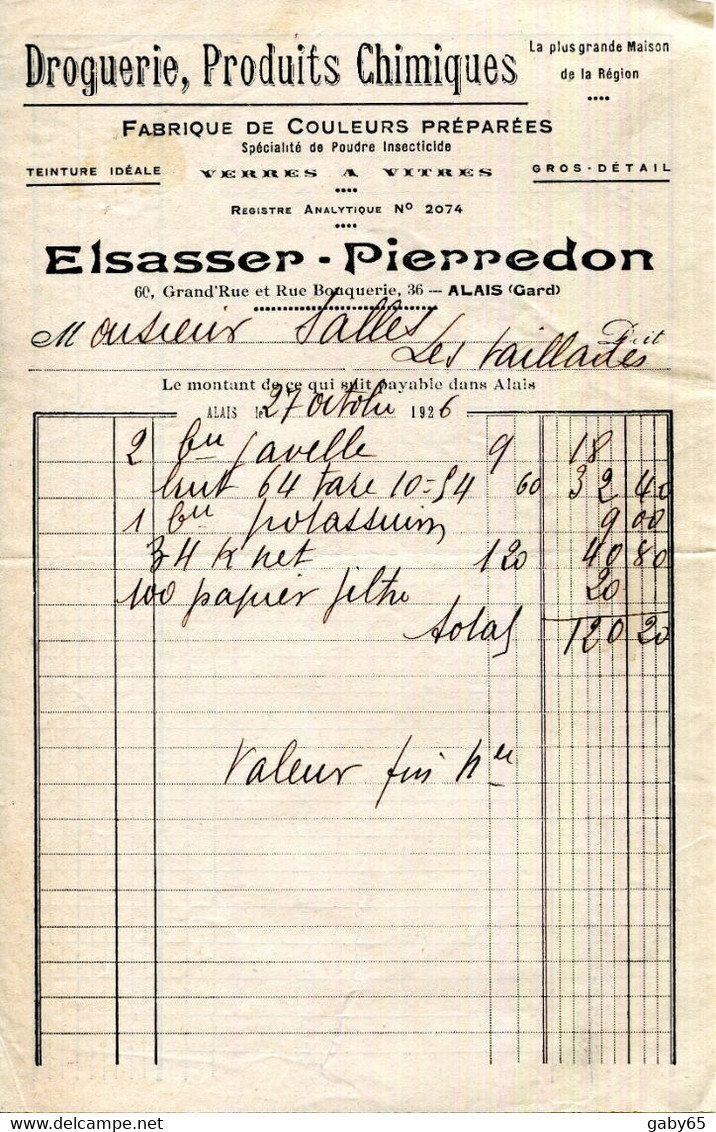 Droguerie, Produits Chimiques
La plus grande Maison
de la Région
FABRIQUE DE COULEURS PRÉPARÉES
Spécialité de Poudre Insecticide
TEINTURE IDÉALE VERRES A VITRES GROS-DÉTAIL
REGISTRE ANALYTIQUE No 2074
Elsasser-Pierredon
60, Grand'Rue et Rue Bouquerie, 36 — ALAIS (Gard)
Monsieur Salles Doit
Les taillades
Le montant de ce qui suit payable dans Alais
ALAIS le 27 octobre 1926
2 bn javelle 9 18
64 tare 10=54 60 32 40
1 bn potassium 9 00
34 k net 120 40 80
100 papier filtre 20
total 120 20
Valeur fin
gaby65